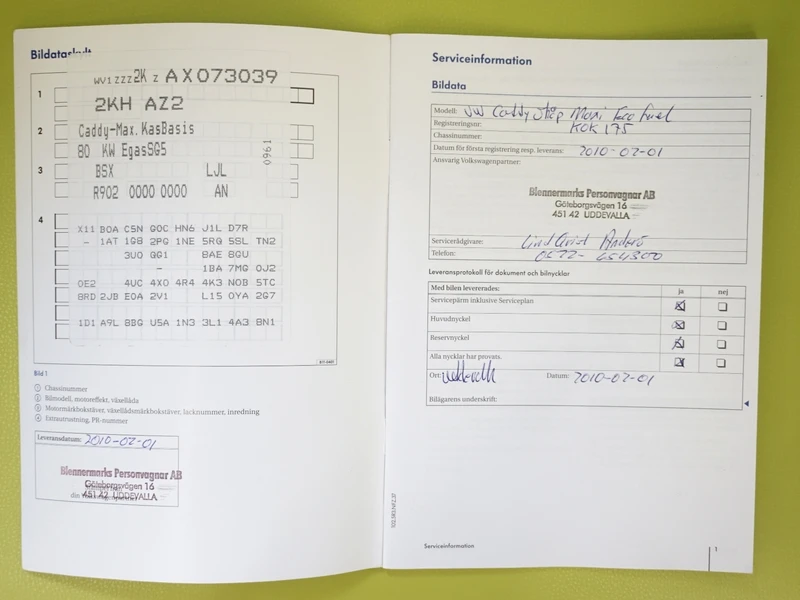 Bildataskylt
WV1ZZZ2K Z AX073039
1
2KH AZ2
2
Caddy-Max. KasBasis
80 KW EgasSG5
0961
3
BSX LJL
R902 0000 0000 AN
4
X11 B0A C5N G0C HN6 J1L D7R
- 1AT 1G8 2PG 1NE 5RG 5SL TN2
3U0 QG1 BAE 8GU
- 1BA 7MG 0J2
0E2 4UC 4X0 4R4 4K3 N0B 5TC
8RD 2JB E0A 2V1 L15 0YA 2G7
1D1 A9L BBG U5A 1N3 3L1 4A3 BN1
Bild 1
1 Chassinummer
2 Bilmodell, motoreffekt, växellåda
3 Motormärkbokstäver, växellådsmärkbokstäver, lacknummer, inredning
4 Extrautrustning, PR-nummer
Leveransdatum: 2010-02-01
Blennermarks Personvagnar AB
Göteborgsvägen 16
451 42 UDDEVALLA
din
Serviceinformation
Bildata
Modell: VW Caddy Skåp Maxi Eco Fuel
Registreringsnr: KOK 175
Chassinummer:
Datum för första registrering resp. leverans: 2010-02-01
Ansvarig Volkswagenpartner:
Blennermarks Personvagnar AB
Göteborgsvägen 16
451 42 UDDEVALLA
Servicerådgivare:
Telefon: 0522-654300
Leveransprotokoll för dokument och bilnycklar
Med bilen levererades: ja nej
Servicepärm inklusive Serviceplan
Huvudnyckel
Reservnyckel
Alla nycklar har provats.
Ort: Uddevalla Datum: 2010-02-01
Bilägarens underskrift:
Serviceinformation
1